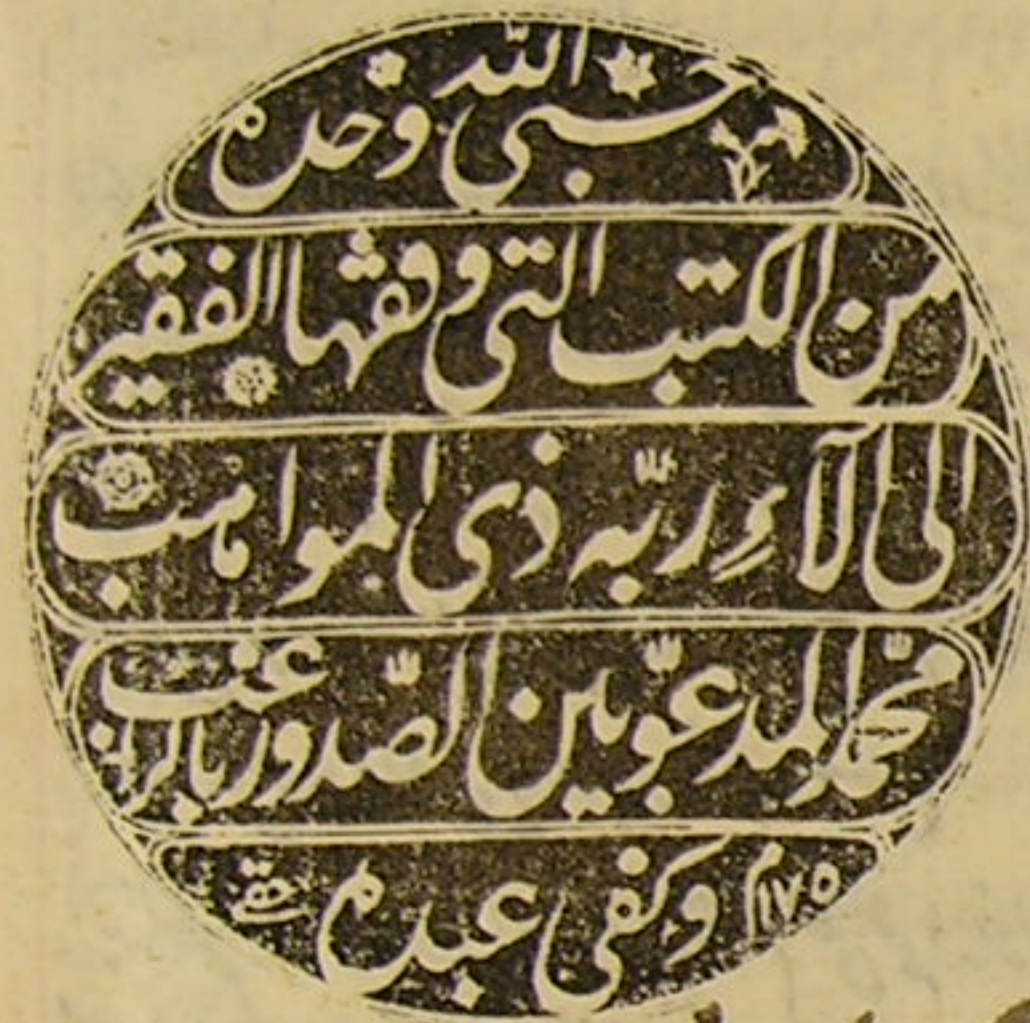 حسبي الله وحده
من الكتب التي وقفها الفقير
الى آلاءِ ربّه ذي المواهب
محمّد المدعوّ بين الصّدور بالراغب
وكفى عبده ١٧٥